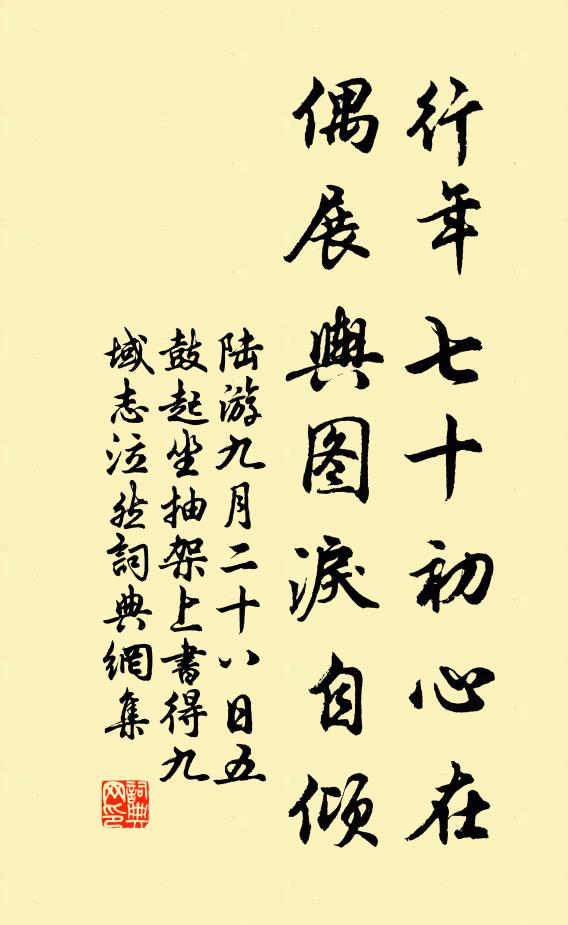 行年七十初心在
偶展輿图淚自傾
陆游九月二十八日五
鼓起坐抽架上書得九
域志泣然詞典網集
詞典
网印